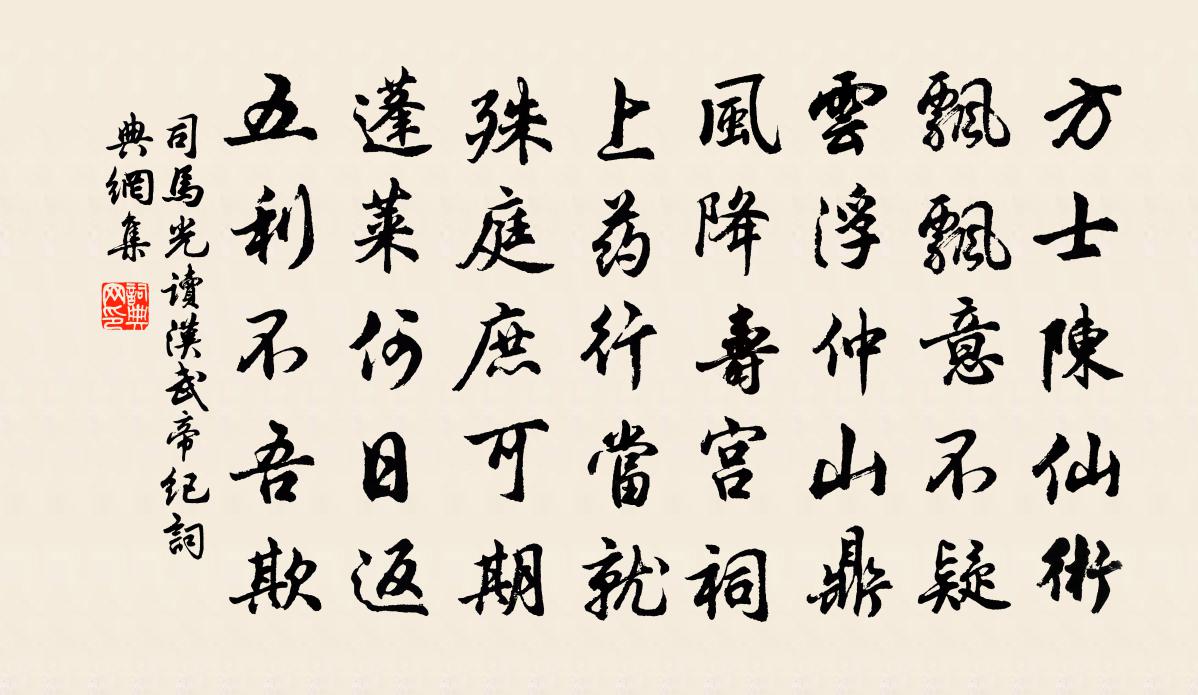 方士陳仙術
飄飄意不疑
雲浮仲山鼎
風降壽宮祠
上药行當就
殊庭庶可期
蓬萊何日返
五利不吾欺
司馬光讀漢武帝紀詞
典網集
詞典网印